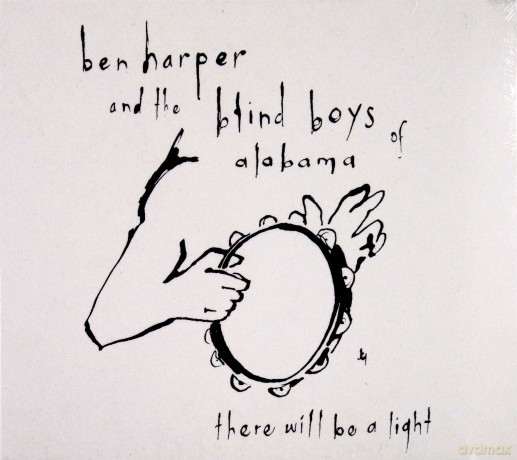 ben harper
and the blind boys of
alabama
there will be a light
avdmax